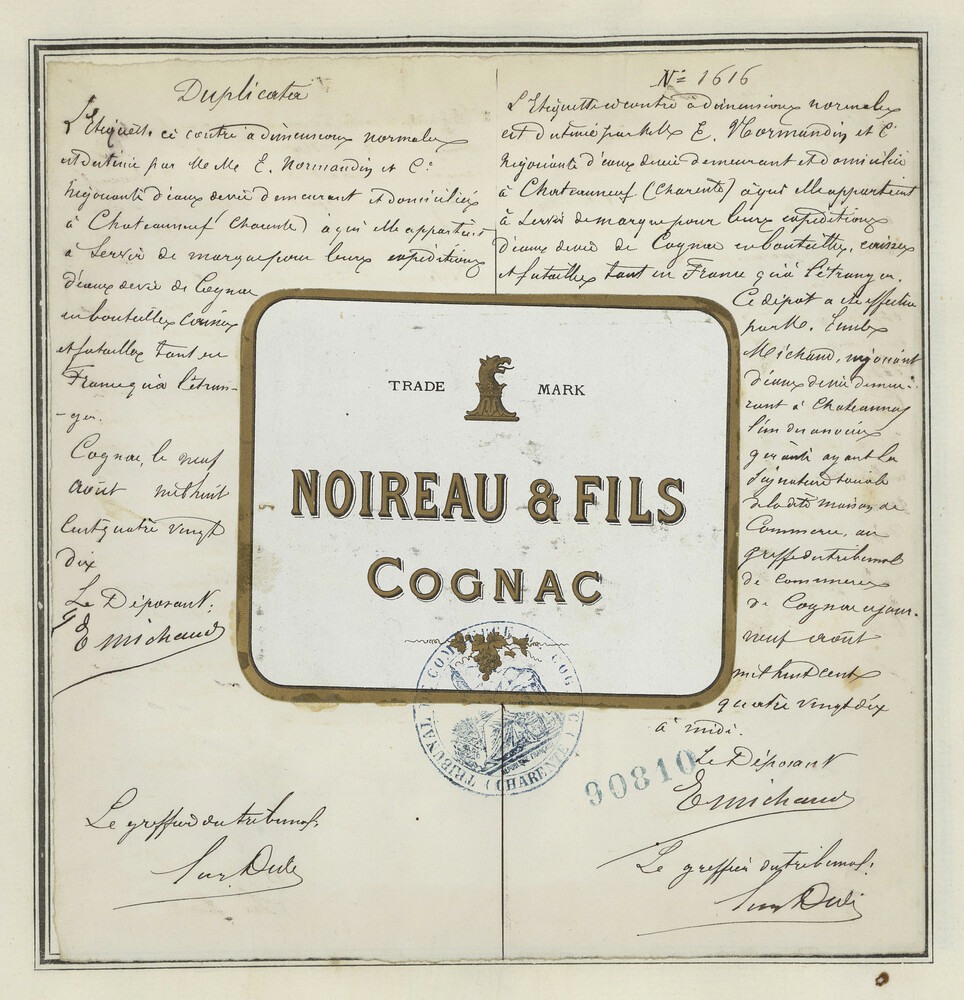 Duplicata
L'Etiquette ci contre à dimensions normales
est destinée par MM E. Normandin et Cie
négociants d'eaux de vie demeurant et domiciliés
à Chateauneuf Charente) à qui elle appartient
à servir de marque pour leurs expéditions
d'eaux de vie de Cognac
en bouteilles caisses
et futailles tant en
France qu'à l'étran-
-ger.
Cognac, le neuf
août mil huit
cent quatre vingt
dix
Le Déposant.
E Michaud
Le greffier du tribunal.
No 1616
L'Etiquette ci contre à dimensions normales
est destinée par MM E. Normandin et Cie
négociants d'eaux de vie demeurant et domiciliés
à Chateauneuf (Charente) à qui elle appartient
à servir de marque pour leurs expéditions
d'eaux de vie de Cognac en bouteilles, caisses
et futailles tant en France qu'à l'étranger.
Ce dépot a été effectué
par M. Emile
Michaud, négociant
d'eaux de vie demeu-
rant à Chateauneuf
l'un des anciens
gérants ayant la
signature sociale
de la dite maison de
Commerce, au
greffe du tribunal
de commerce
de Cognac ce jour.
neuf août
mil huit cent
quatre vingt dix
à midi.
Le Déposant
E Michaud
Le greffier du tribunal.
TRADE MARK
NOIREAU & FILS
COGNAC
TRIBUNAL DE COMMERCE DE COGNAC (CHARENTE)
90810